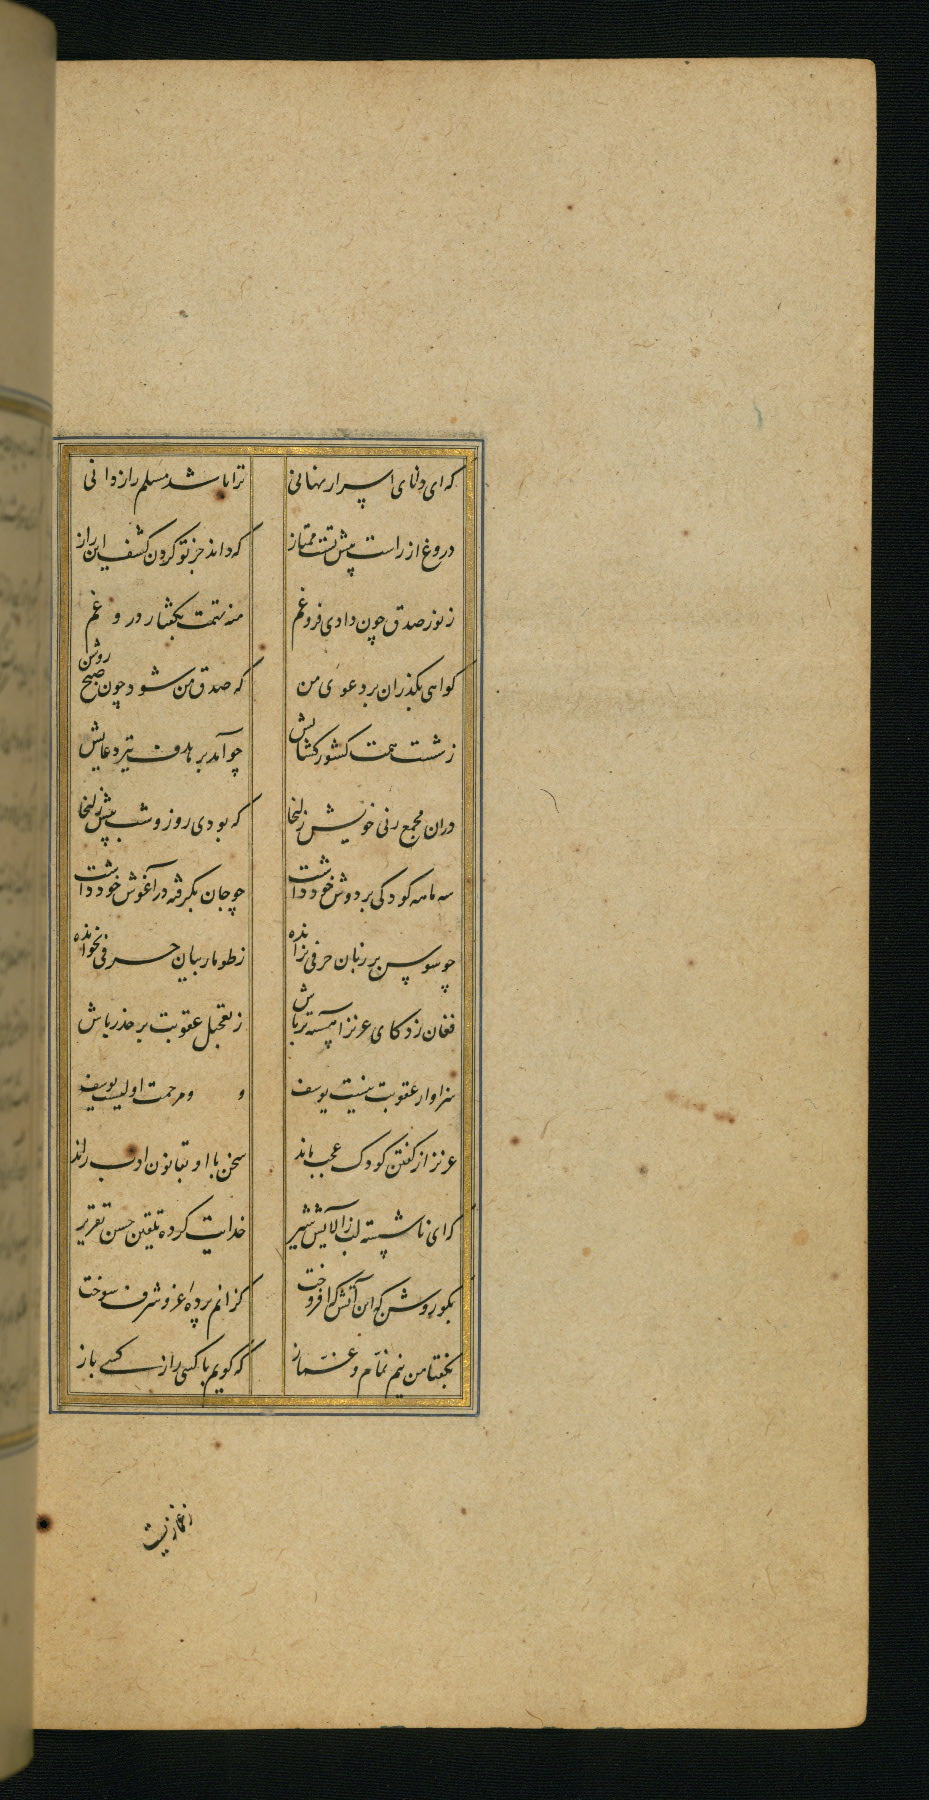 که ای دانای اسرار نهانی ترا باشد مسلم رازدانی
دروغ از راست پیش تست ممتاز که داند جز تو کردن کشف این راز
ز نور صدق چون دادی فروغم منه تهمت بگفتار دروغم
کواهی بگذران بر دعوی من که صدق من شود چون صبح روشن
ز شست همت کشور کشایش چو آمد بر هدف تیر دعایش
دران مجمع زنی خویش زلیخا که بودی روز و شب پیش زلیخا
سه ماهه کودکی بر دوش خود داشت چو جان بگرفته در آغوش خود داشت
چو سوسن بر زبان حرفی نرانده ز طومار بیان حرفی نخوانده
فغان زد کای عزیز آهسته تر باش ز تعجیل عقوبت بر حذر باش
سزاوار عقوبت نیست یوسف و و مرحمت اولیست یوسف
عزیز از گفتن کودک عجب ماند سخن با او بقانون ادب راند
که ای ناشسته لب ز آلایش شیر خدایت کرده تلقین حسن تقریر
بکو روشن که این آتش که افروخت کز انم پرده عز و شرف سوخت
بگفتا من نیم نمام و غماز که گویم با کسی راز کسی باز
ز غمازیست